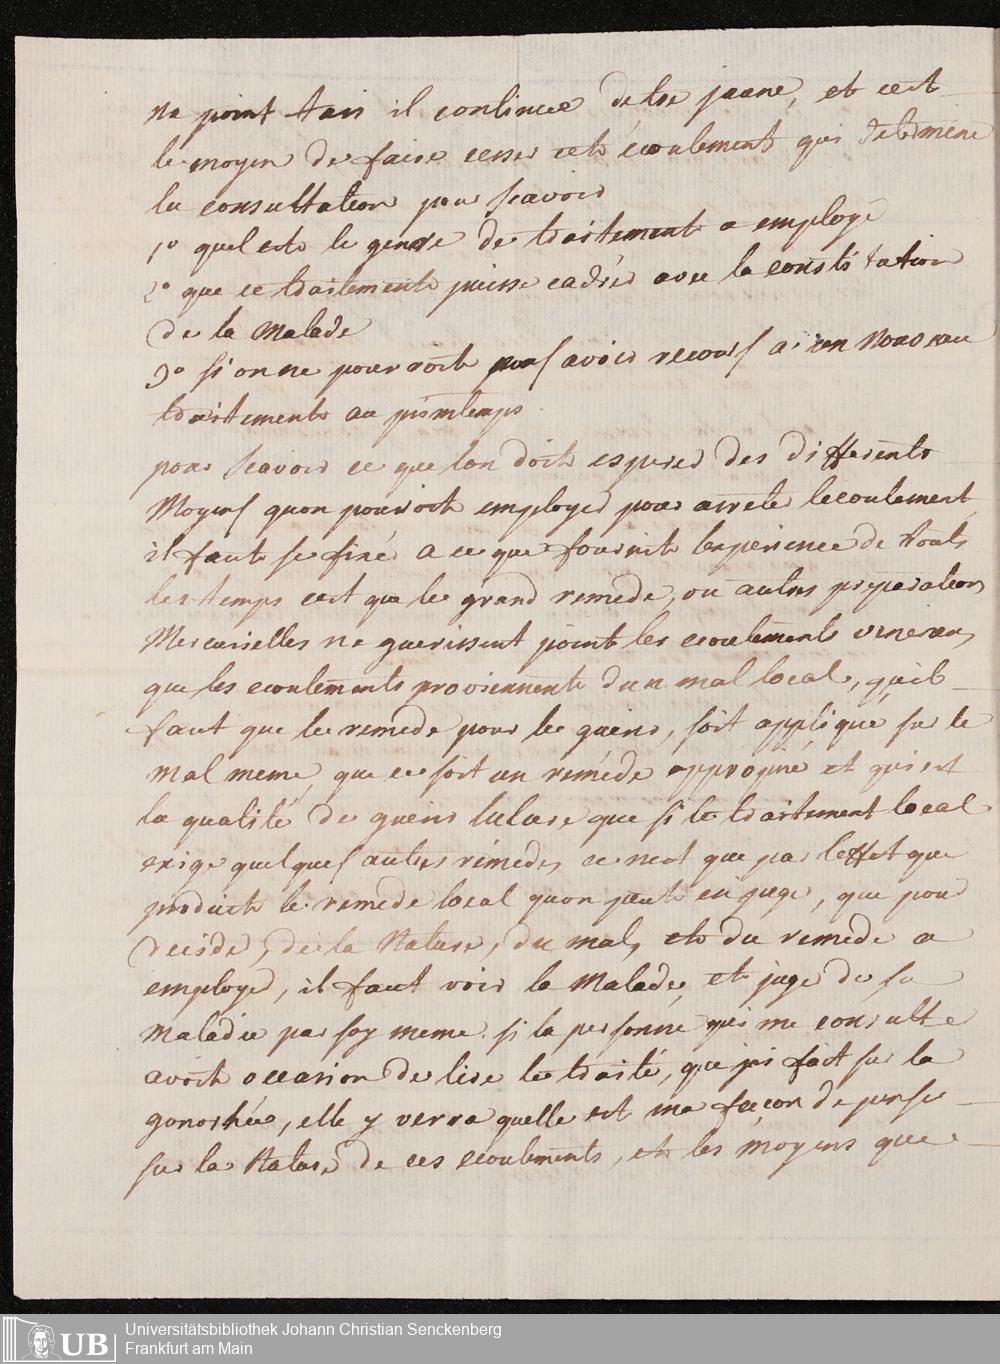 na point tari il continue detre jaune, et cest
le moyen de faire cesser cet écoulement qui determine
la consultation pour scavoir
1° quel est le genre de traitement a employé
2° que ce traitement puisse cadrer avec la constitution
de la Malade
3° si on ne pourroit pas avoir recours a un Nouveau
traitement au printemps.
pour scavoir ce que lon doit esperer des differents
Moyens quon pouroit employer pour arreter lecoulement
il faut se fixer a ce que fournit lexperience de touts
les temps cest que le grand remede, ou autres preparations
Mercurielles ne guerissent point les ecoulements veneriens,
que les ecoulements proviennent dun mal local, quil
faut que le remede pour le guerir, soit appliqué sur le
mal meme, que ce soit un remède approprié et qui est
la qualité de guerir lulcere que si le traitement local
exige quelques autres rémedes, ce nest que par leffet que
produit le remede local quon peut en juger, que pour
decider, de la Nature, du mal, et du remede a
employer, il faut voir la Malade, et juger de sa
Maladie par soy meme. si la personne qui me consulte
avoit occasion de lire le traité, que jai fait sur la
gonorhée, elle y verra quelle est ma façon de penser
sur la Nature de ces ecoulements, et les moyens que
Universitätsbibliothek Johann Christian Senckenberg
Frankfurt am Main
UB